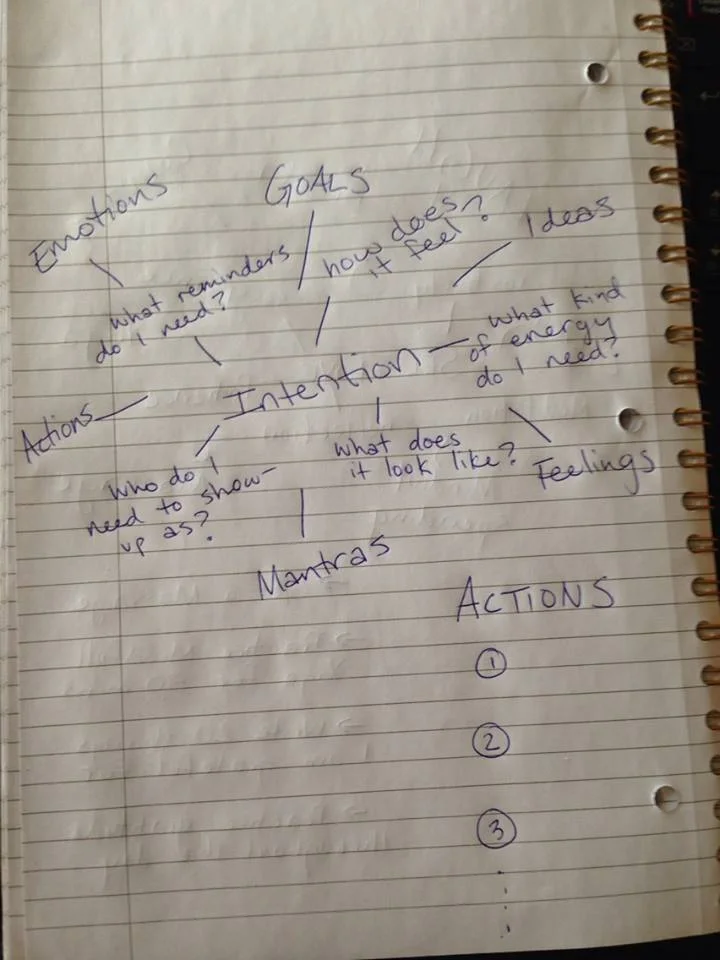 GOALS
Emotions
Ideas
how does
it feel?
what reminders
do I need?
what kind
of energy
do I need?
Intention
Actions
what does
it look like?
Feelings
who do I
need to show-
up as?
Mantras
ACTIONS
1
2
3